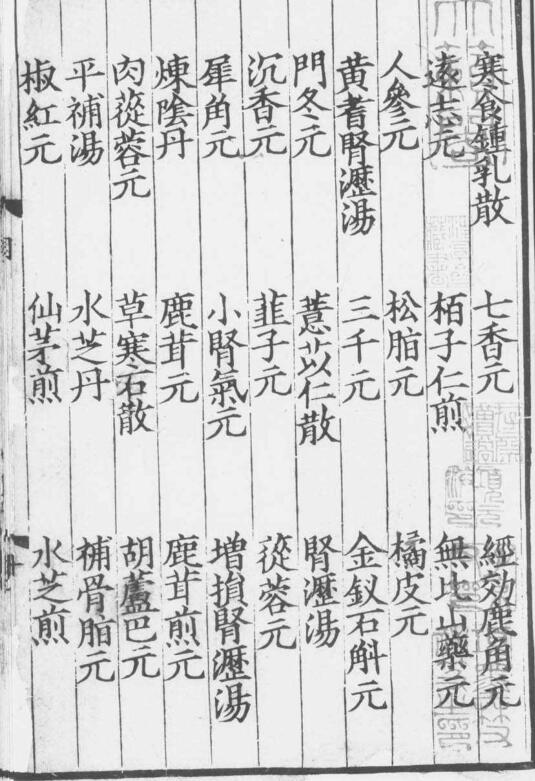 寒食鍾乳散 七香元 經効鹿角元
遠志元 栢子仁煎 無比山藥元
人參元 松脂元 橘皮元
黃耆腎瀝湯 三千元 金釵石斛元
門冬元 薏苡仁散 腎瀝湯
沉香元 韭子元 蓯蓉元
犀角元 小腎氣元 增損腎瀝湯
煉陰丹 鹿茸元 鹿茸煎元
肉蓯蓉元 草寒石散 胡蘆巴元
平補湯 水芝丹 補骨脂元
椒紅元 仙茅煎 水芝煎